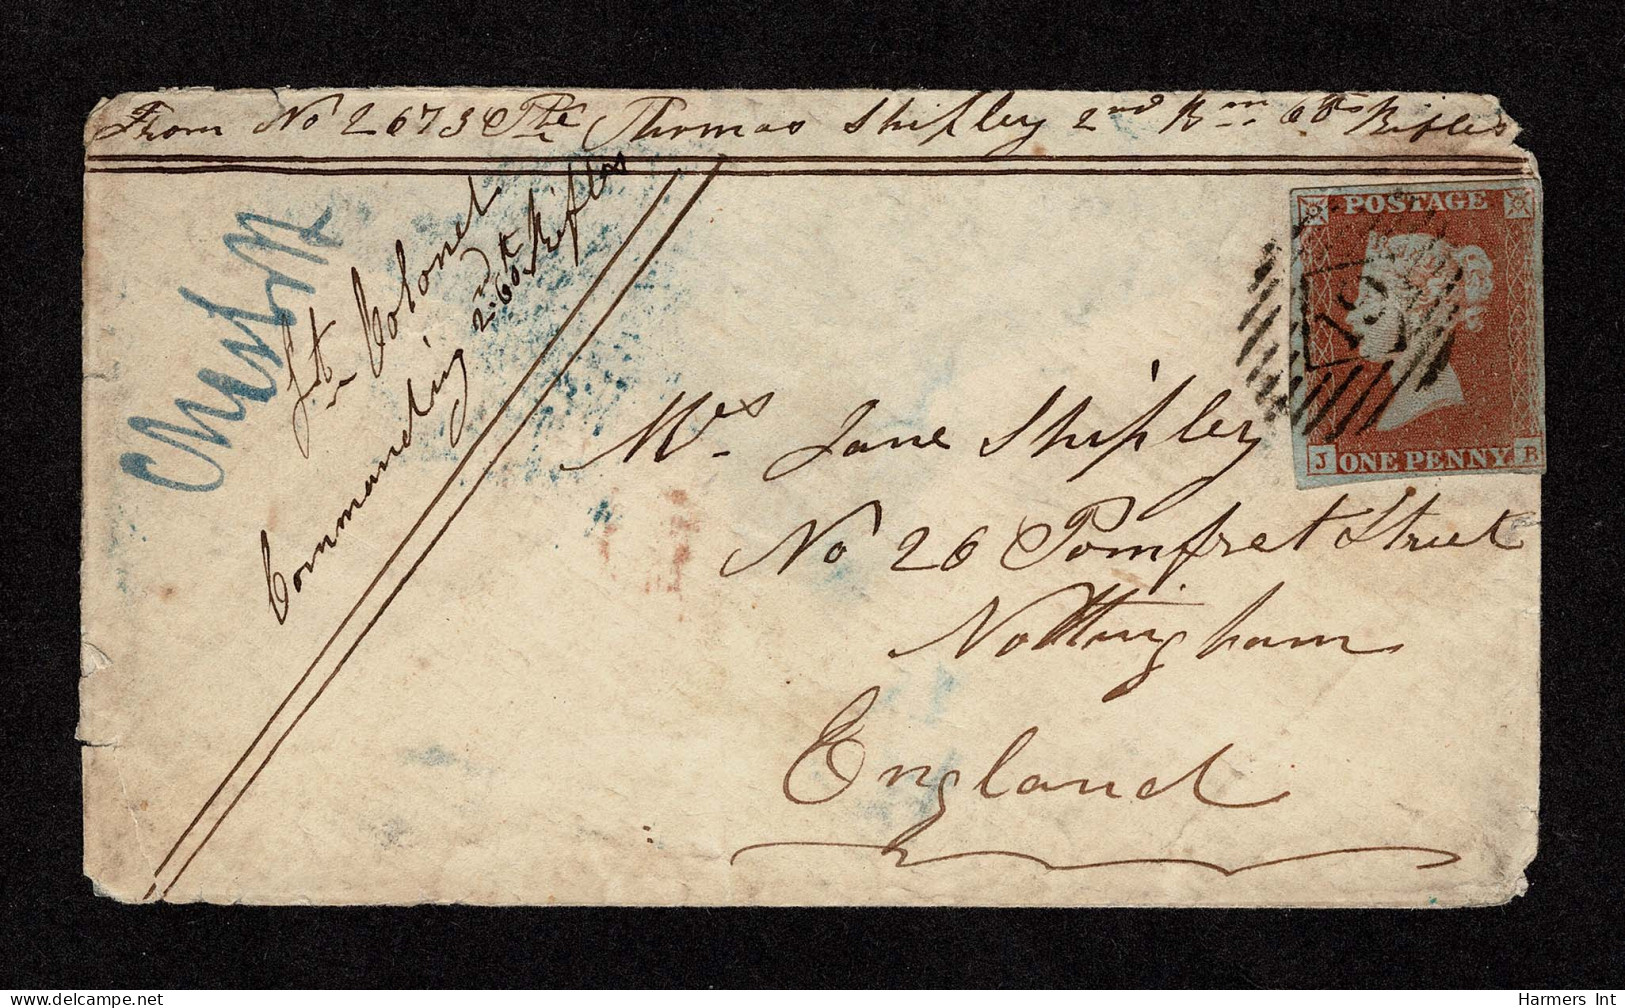 From No 2673 Pte Thomas Shipley 2nd Bn 60th Rifles
Lt Colonel
Commanding
2nd 60th Rifles
POSTAGE
J ONE PENNY B
Mrs Jane Shipley
No 26 Pomfret Street
Nottingham
England
delcampe.net
Harmers Int